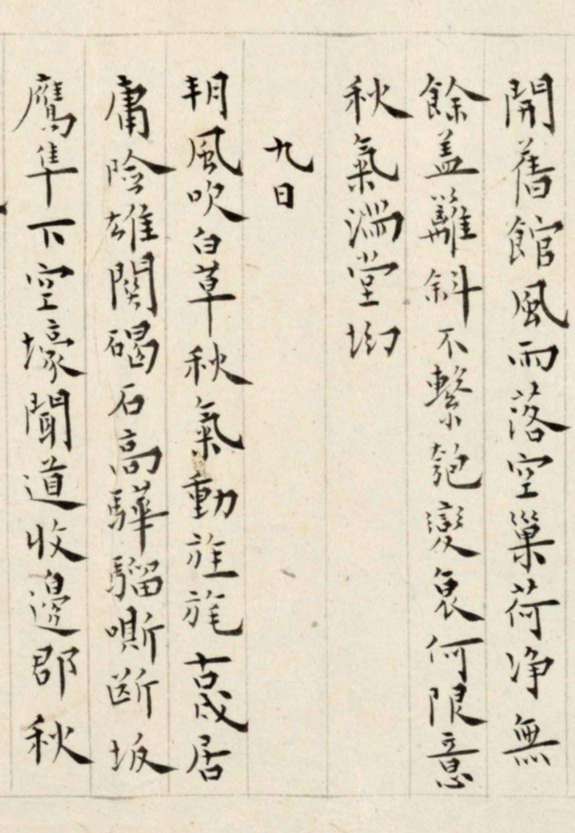 開舊館風雨落空巢荷净無
餘盖籬斜不繫匏變衰何限意
秋氣滿堂坳
九日
朔風吹白草秋氣動旌旄古戍居
庸險雄關碣石高驊騮嘶斷坂
鷹隼下空壕聞道收邊郡秋